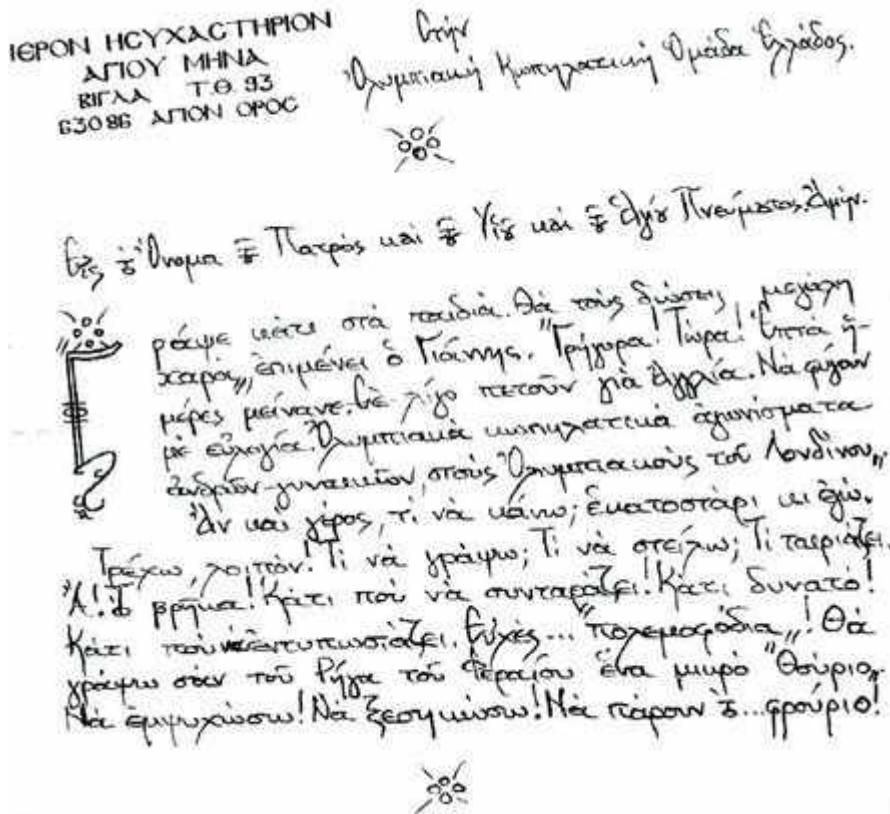 ΙΕΡΟΝ ΗСΥΧΑСΤΗΡΙΟΝ
ΑΓΙΟΥ ΜΗΝΑ
ΒΙΓΛΑ Τ.Θ. 93
63086 ΑΓΙΟΝ ΟΡΟС
Στήν
Ὀλυμπιακή Κωπηλατική Ὁμάδα Ἑλλάδος.
Εἰς τό Ὄνομα τοῦ Πατρός καί τοῦ Υἱοῦ καί τοῦ Ἁγίου Πνεύματος. Ἀμήν.
"Γράψε κάτι στά παιδιά. Θά τούς δώσεις μεγάλη
χαρά", ἐπιμένει ὁ Γιάννης. "Γρήγορα! Τώρα! Ἑπτά ἡ-
μέρες μείνανε. Σέ λίγο πετοῦν γιά Ἀγγλία. Νά φύγουν
μέ εὐλογία. Ὀλυμπιακά κωπηλατικά ἀγωνίσματα
ἀνδρῶν-γυναικῶν στούς Ὀλυμπιακούς τοῦ Λονδίνου"
Ἄν καί γέρος, τί νά κάνω; ἑκατοστάρι κι ἐγώ.
Τρέχω, λοιπόν! Τί νά γράψω; Τί νά στείλω; Τί ταιριάζει.
Ἄ! Τό βρῆκα! Κάτι πού νά συνταράζει! Κάτι δυνατό!
Κάτι πού νά ἐντυπωσιάζει. Εὐχές... "πολεμοφόδια"! Θά
γράψω σάν τοῦ Ρήγα τοῦ Φεραίου ἕνα μικρό "Θούριο".
Νά ἐμψυχώσω! Νά ξεσηκώσω! Νά πάρουν τό... φρούριο!